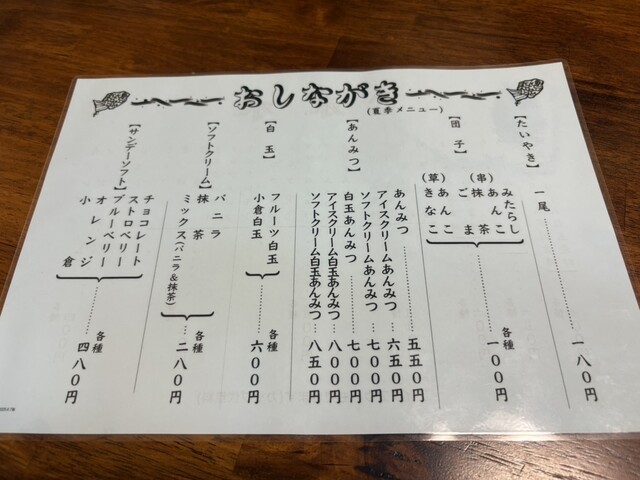 おしながき
(夏季メニュー)
【たいやき】
一尾……………一八〇円
【団子】
(串)
みたらし
あんこ
抹茶
ごま
(草)
あんこ
きなこ
各種
……一〇〇円
【あんみつ】
あんみつ……………五五〇円
アイスクリームあんみつ…六五〇円
ソフトクリームあんみつ…七〇〇円
白玉あんみつ………七〇〇円
アイスクリーム白玉あんみつ…八〇〇円
ソフトクリーム白玉あんみつ…八五〇円
【白玉】
フルーツ白玉
小倉白玉
各種
………六〇〇円
【ソフトクリーム】
バニラ
抹茶
ミックス(バニラ&抹茶)
各種
……二八〇円
【サンデーソフト】
チョコレート
ストロベリー
ブルーベリー
オレンジ
小倉
各種
………四八〇円